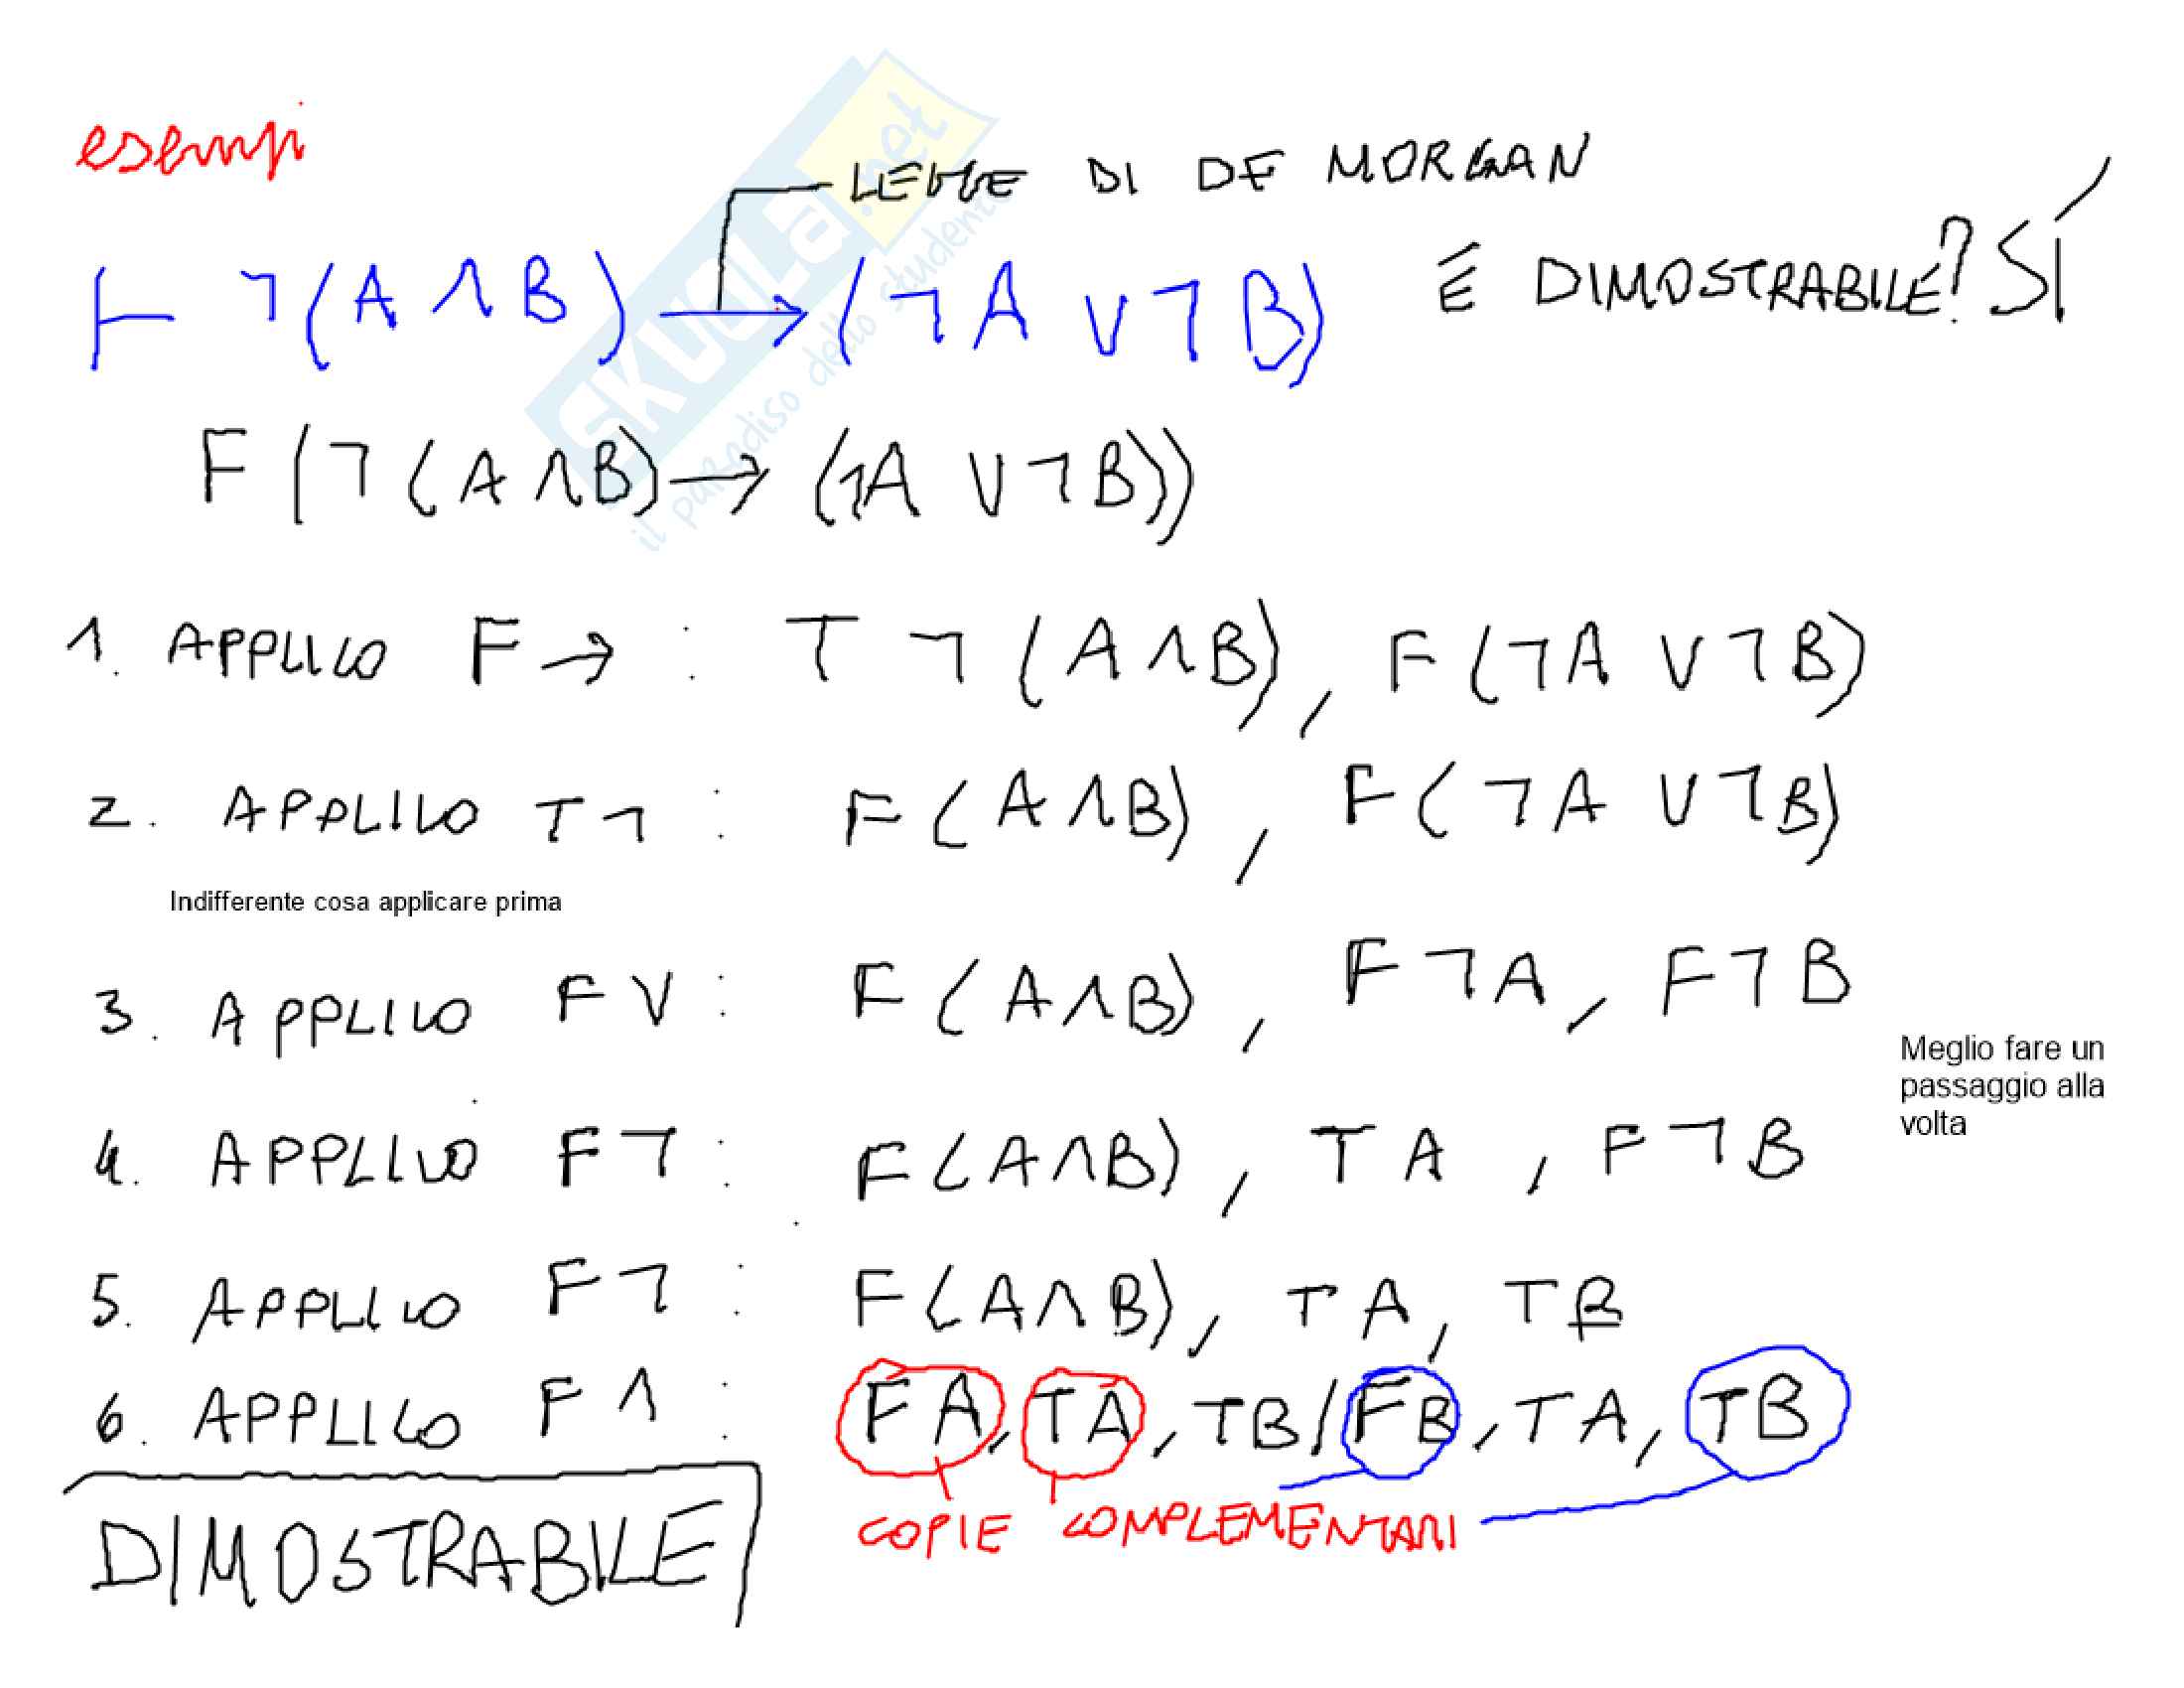 esempi
LEGGE DI DE MORGAN
⊢ ¬(A ∧ B) → (¬A ∨ ¬B) È DIMOSTRABILE? SÍ
F (¬(A ∧ B) → (¬A ∨ ¬B))
1. APPLICO F → : T ¬(A ∧ B), F(¬A ∨ ¬B)
2. APPLICO T ¬ : F(A ∧ B), F(¬A ∨ ¬B)
Indifferente cosa applicare prima
3. APPLICO F ∨ : F(A ∧ B), F¬A, F¬B
Meglio fare un
passaggio alla
volta
4. APPLICO F¬ : F(A ∧ B), TA, F¬B
5. APPLICO F¬ : F(A ∧ B), TA, TB
6. APPLICO F ∧ : FA, TA, TB / FB, TA, TB
COPIE COMPLEMENTARI
DIMOSTRABILE
SKUOLA.net
il paradiso dello studente